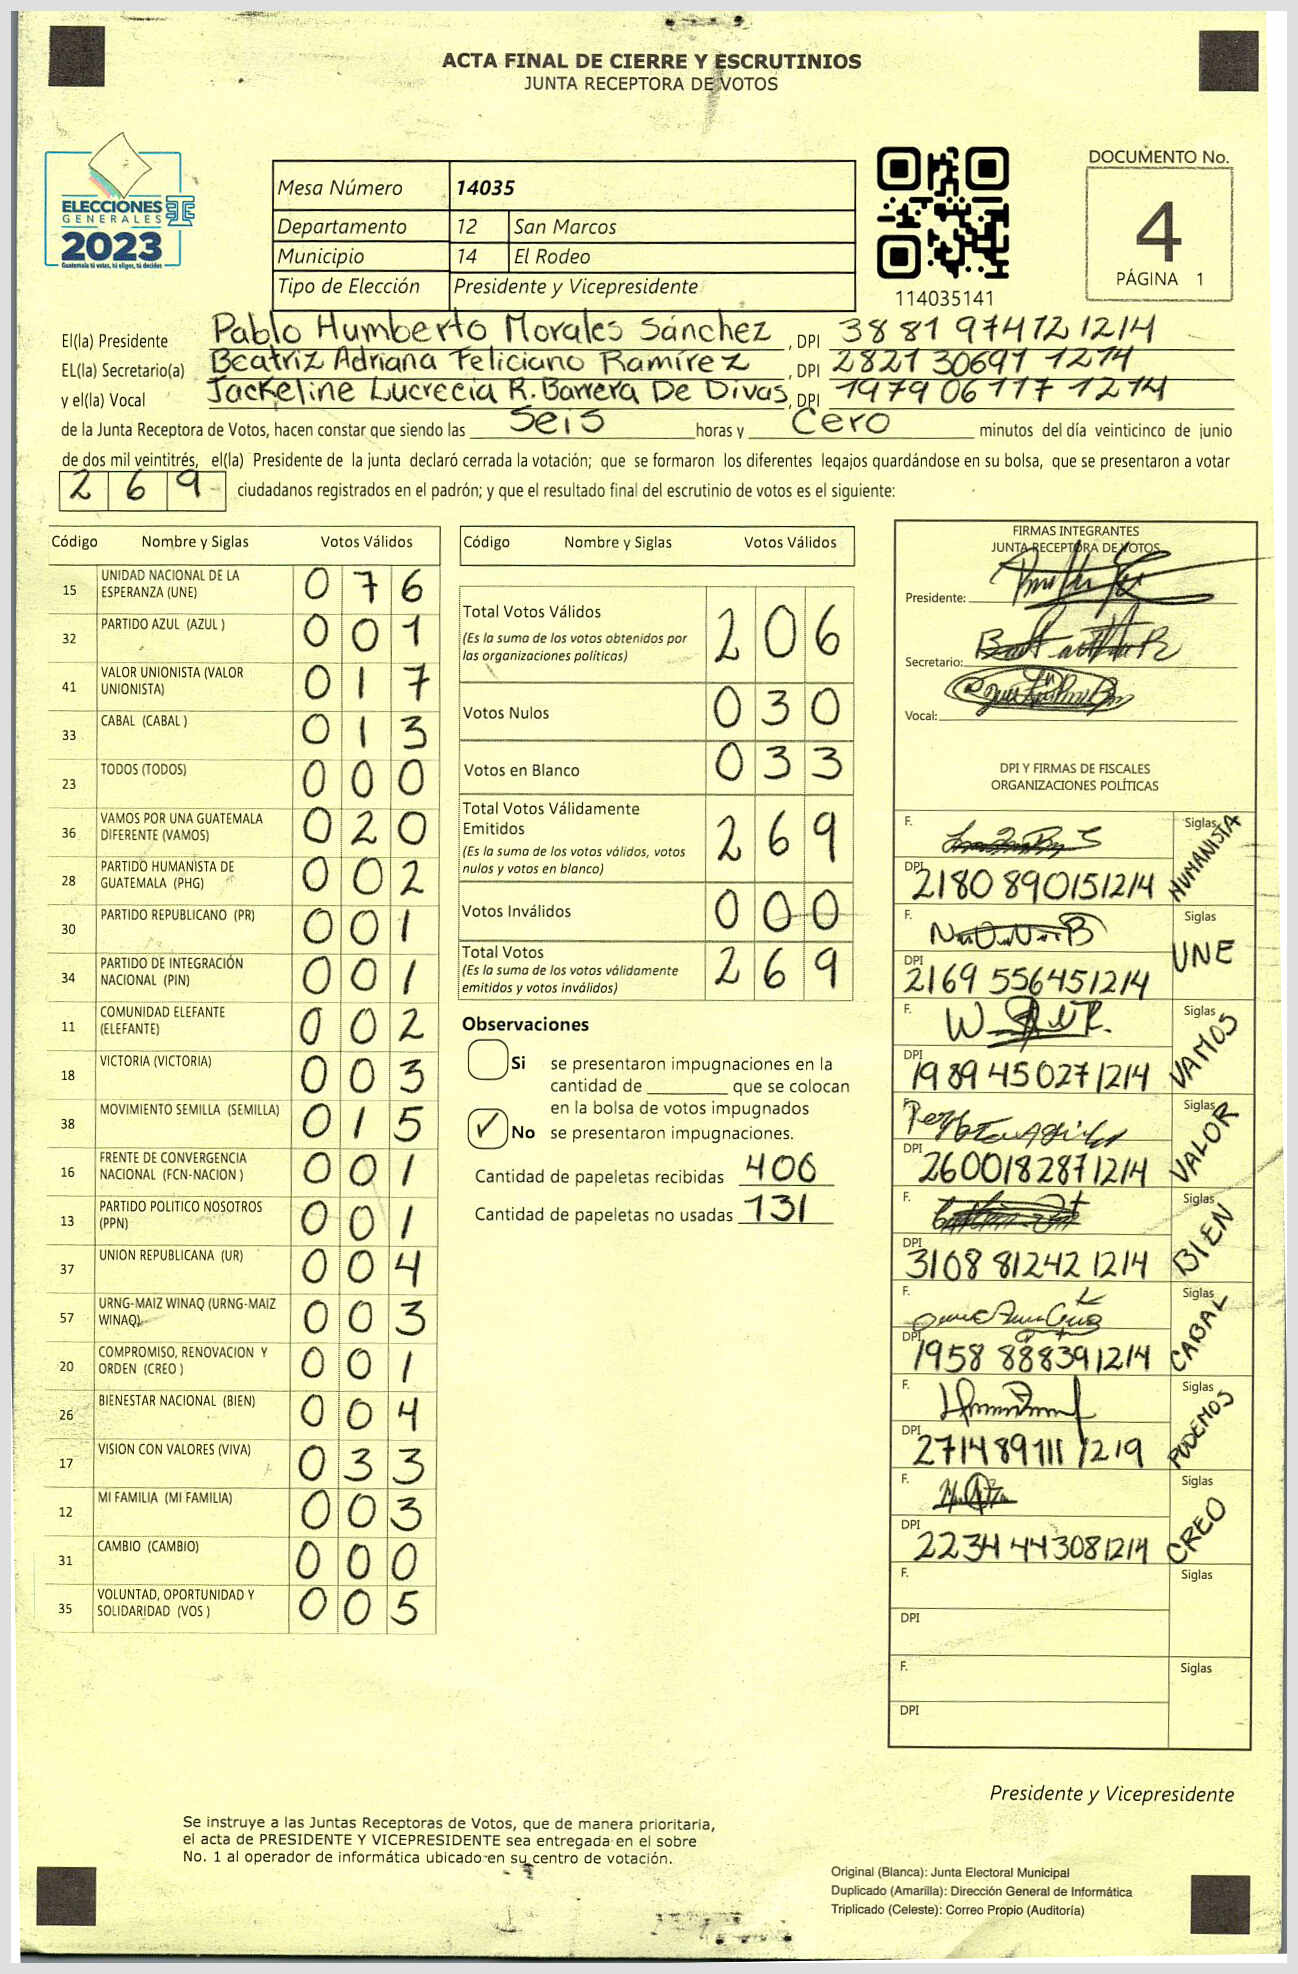 ACTA FINAL DE CIERRE Y ESCRUTINIOS
JUNTA RECEPTORA DE VOTOS
ELECCIONES
GENERALES
2023
Guatemala tú votas, tú eliges, tú decides
Mesa Número 14035
Departamento 12 San Marcos
Municipio 14 El Rodeo
Tipo de Elección Presidente y Vicepresidente
114035141
DOCUMENTO No.
4
PÁGINA 1
El(la) Presidente Pablo Humberto Morales Sánchez, DPI 3881 97412 1214
EL(la) Secretario(a) Beatriz Adriana Feliciano Ramírez, DPI 2821 30691 1214
y el(la) Vocal Jackeline Lucrecia R. Barrera De Divas, DPI 1979 06117 1214
de la Junta Receptora de Votos, hacen constar que siendo las Seis horas y Cero minutos del día veinticinco de junio
de dos mil veintitrés, el(la) Presidente de la junta declaró cerrada la votación; que se formaron los diferentes legajos guardándose en su bolsa, que se presentaron a votar
269 ciudadanos registrados en el padrón; y que el resultado final del escrutinio de votos es el siguiente:
Código Nombre y Siglas Votos Válidos
15 UNIDAD NACIONAL DE LA ESPERANZA (UNE) 076
32 PARTIDO AZUL (AZUL ) 001
41 VALOR UNIONISTA (VALOR UNIONISTA) 017
33 CABAL (CABAL ) 013
23 TODOS (TODOS) 000
36 VAMOS POR UNA GUATEMALA DIFERENTE (VAMOS) 020
28 PARTIDO HUMANISTA DE GUATEMALA (PHG) 002
30 PARTIDO REPUBLICANO (PR) 001
34 PARTIDO DE INTEGRACIÓN NACIONAL (PIN) 001
11 COMUNIDAD ELEFANTE (ELEFANTE) 002
18 VICTORIA (VICTORIA) 003
38 MOVIMIENTO SEMILLA (SEMILLA) 015
16 FRENTE DE CONVERGENCIA NACIONAL (FCN-NACION ) 001
13 PARTIDO POLITICO NOSOTROS (PPN) 001
37 UNION REPUBLICANA (UR) 004
57 URNG-MAIZ WINAQ (URNG-MAIZ WINAQ) 003
20 COMPROMISO, RENOVACION Y ORDEN (CREO ) 001
26 BIENESTAR NACIONAL (BIEN) 004
17 VISION CON VALORES (VIVA) 033
12 MI FAMILIA (MI FAMILIA) 003
31 CAMBIO (CAMBIO) 000
35 VOLUNTAD, OPORTUNIDAD Y SOLIDARIDAD (VOS ) 005
Código Nombre y Siglas Votos Válidos
Total Votos Válidos 206
(Es la suma de los votos obtenidos por
las organizaciones políticas)
Votos Nulos 030
Votos en Blanco 033
Total Votos Válidamente
Emitidos 269
(Es la suma de los votos válidos, votos
nulos y votos en blanco)
Votos Inválidos 000
Total Votos 269
(Es la suma de los votos válidamente
emitidos y votos inválidos)
Observaciones
Si se presentaron impugnaciones en la
cantidad de ________ que se colocan
en la bolsa de votos impugnados
✓ No se presentaron impugnaciones.
Cantidad de papeletas recibidas 400
Cantidad de papeletas no usadas 131
FIRMAS INTEGRANTES
JUNTA RECEPTORA DE VOTOS
Presidente:
Secretario:
Vocal:
DPI Y FIRMAS DE FISCALES
ORGANIZACIONES POLÍTICAS
F. Siglas HUMANISTA
DPI 2180 89015 1214
F. Siglas UNE
DPI 2169 55645 1214
F. Siglas VAMOS
DPI 1989 45027 1214
F. Siglas VALOR
DPI 2600 18287 1214
F. Siglas BIEN
DPI 3108 81242 1214
F. Siglas CABAL
DPI 1958 88839 1214
F. Siglas PODEMOS
DPI 2714 89111 1219
F. Siglas CREO
DPI 2234 44308 1214
F. Siglas
DPI
F. Siglas
DPI
Presidente y Vicepresidente
Se instruye a las Juntas Receptoras de Votos, que de manera prioritaria,
el acta de PRESIDENTE Y VICEPRESIDENTE sea entregada en el sobre
No. 1 al operador de informática ubicado en su centro de votación.
Original (Blanca): Junta Electoral Municipal
Duplicado (Amarilla): Dirección General de Informática
Triplicado (Celeste): Correo Propio (Auditoría)